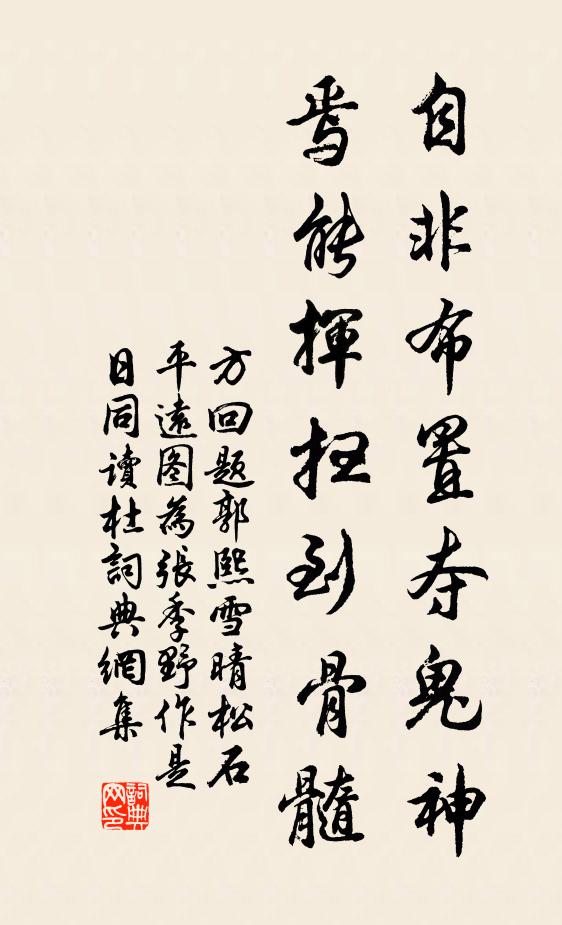 自非布置夺鬼神
焉能揮扫到骨髓
方回题郭熙雪晴松石
平遠图為張季野作是
日同讀杜詞典網集
詞典网印